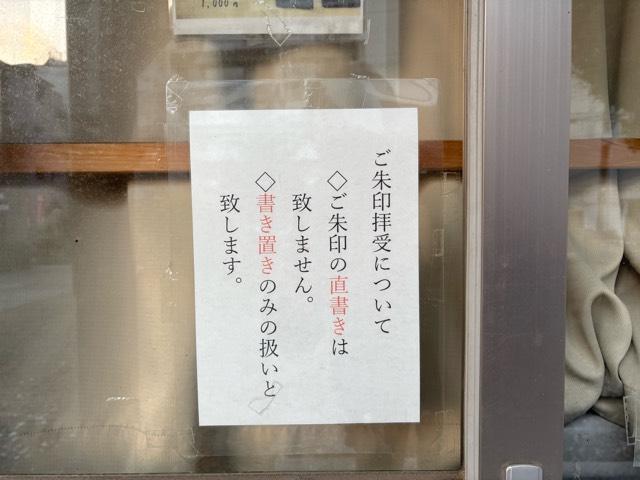 1,000円
ご朱印拝受について
◇ご朱印の直書きは
致しません。
◇書き置きのみの扱いと
致します。